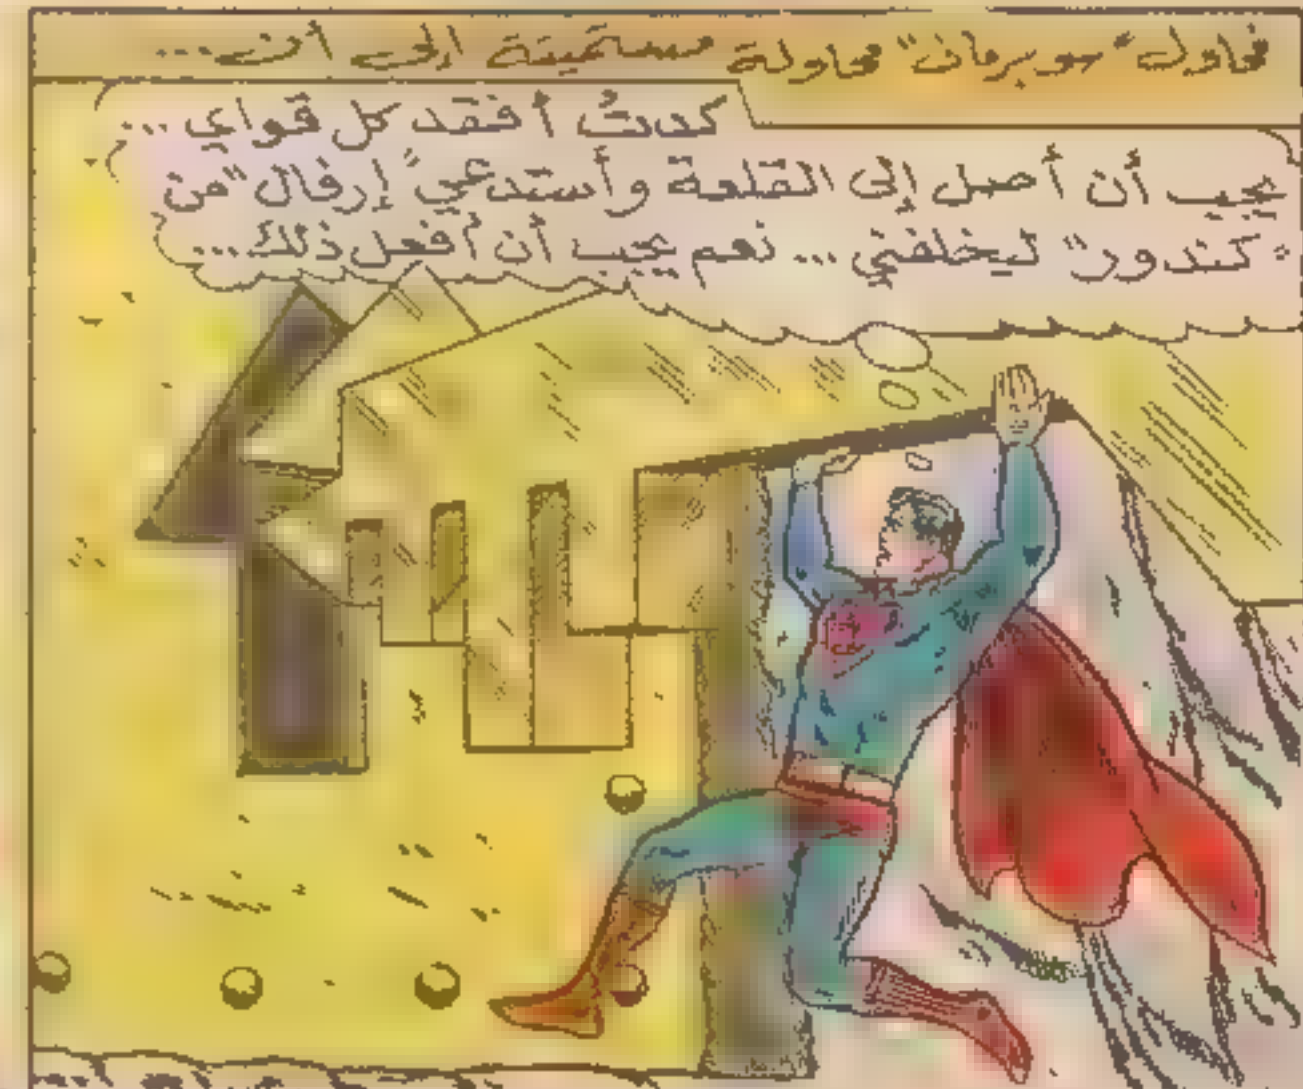 فحاول "سوبرمان" محاولة مستميتة إلى أن...
كدتُ أفقد كل قواي...
يجب أن أصل إلى القلعة وأستدعي "إرفال" من
"كندور" ليخلفني... نعم يجب أن أفعل ذلك...